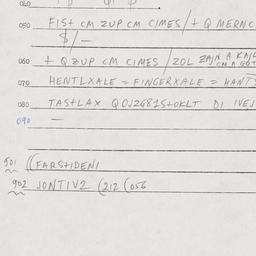 050 FISt CM ZUP CM CIMES / t Q MERNC
$/-
060 t Q ZUP CM CIMES / ZOL ZAJN A KAJL
CM A GÖT
070 HENTLXALE = FINGERXALE = HANTS
080 TAStLAX QOJZG81StOKLT DI IVEJ
090 —
901 ((FARStIDENI
902 JONTIV2 (212 (056